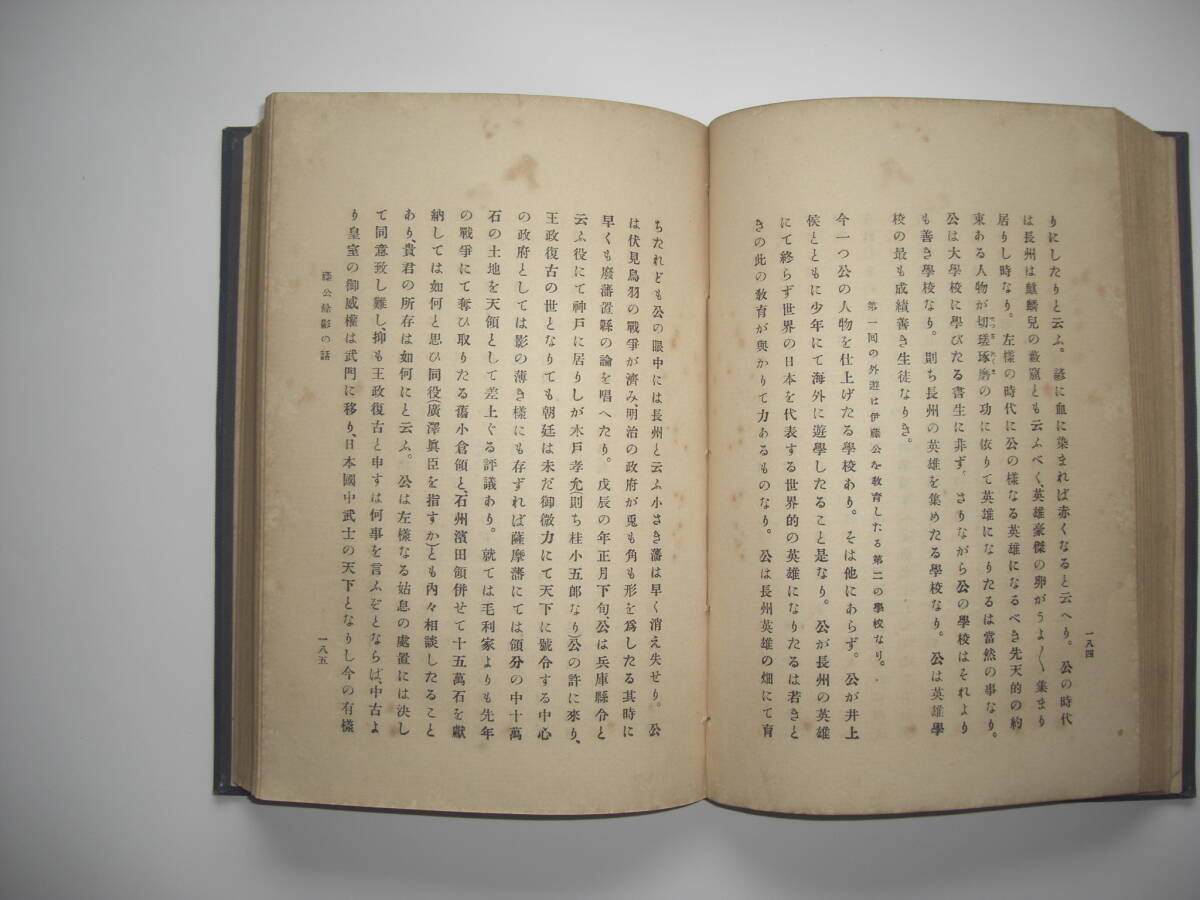 一八四
りにしたりと云ふ。諺に血に染まれば赤くなると云へり。公の時代
は長州は麒麟兒の藪窟とも云ふべく、英雄豪傑の卵がうよ〳〵集まり
居りし時なり。左樣の時代に公の樣なる英雄になるべき先天的の約
束ある人物が切瑳琢磨の功に依りて英雄になりたるは當然の事なり。
公は大學校に學びたる書生に非ず。さりながら公の學校はそれより
も善き學校なり。則ち長州の英雄を集めたる學校なり。公は英雄學
校の最も成績善き生徒なりき。
第一回の外遊は伊藤公を敎育したる第二の學校なり。
今一つ公の人物を仕上げたる學校あり。そは他にあらず。公が井上
侯とともに少年にて海外に遊學したること是なり。公が長州の英雄
にて終らず世界の日本を代表する世界的の英雄になりたるは若きと
きの此の敎育が與かりて力あるものなり。公は長州英雄の畑にて育
ちたれども公の眼中には長州と云ふ小さき藩は早く消え失せり。公
は伏見鳥羽の戰爭が濟み、明治の政府が兎も角も形を爲したる其時に
早くも廢藩置縣の論を唱へたり。戊辰の年正月下旬、公は兵庫縣令と
云ふ役にて神戸に居りしが木戸孝允(則ち桂小五郎なり)公の許に來り、
王政復古の世となりても朝廷は未だ御微力にて天下に號令する中心
の政府としては影の薄き樣にも存ずれば薩摩藩にては領分の中十萬
石の土地を天領として差上ぐる評議あり。就ては毛利家よりも先年
の戰爭にて奪ひ取りたる舊小倉領と、石州濱田領併せて十五萬石を獻
納しては如何と思ひ同役(廣澤眞臣を指すか)とも內々相談したること
あり、貴君の所存は如何にと云ふ。公は左樣なる姑息の處置には決し
て同意致し難し、抑も王政復古と申すは何事を言ふぞとならば、中古よ
り皇室の御威權は武門に移り、日本國中武士の天下となりし今の有樣
藤公餘影の話
一八五